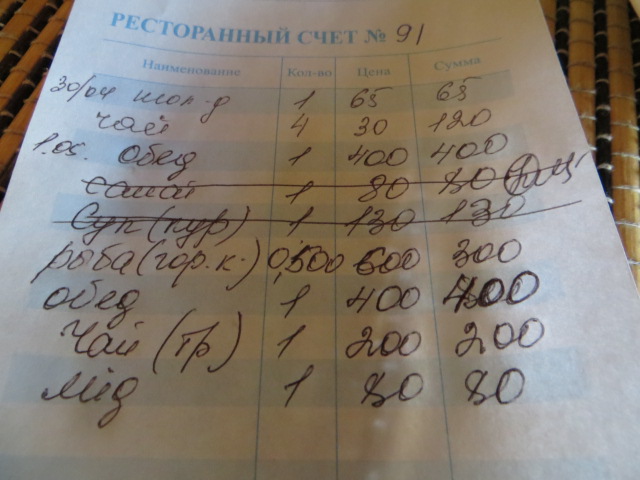 РЕСТОРАННЫЙ СЧЕТ № 91
Наименование Кол-во Цена Сумма
30/04 шол-д 1 65 65
чай 4 30 120
1.05. обед 1 400 400
салат 1 80 80
Суп (кур) 1 130 130
рыба (гор.к.) 0,500 600 300
обед 1 400 400
чай (тр) 1 200 200
мід 1 80 80